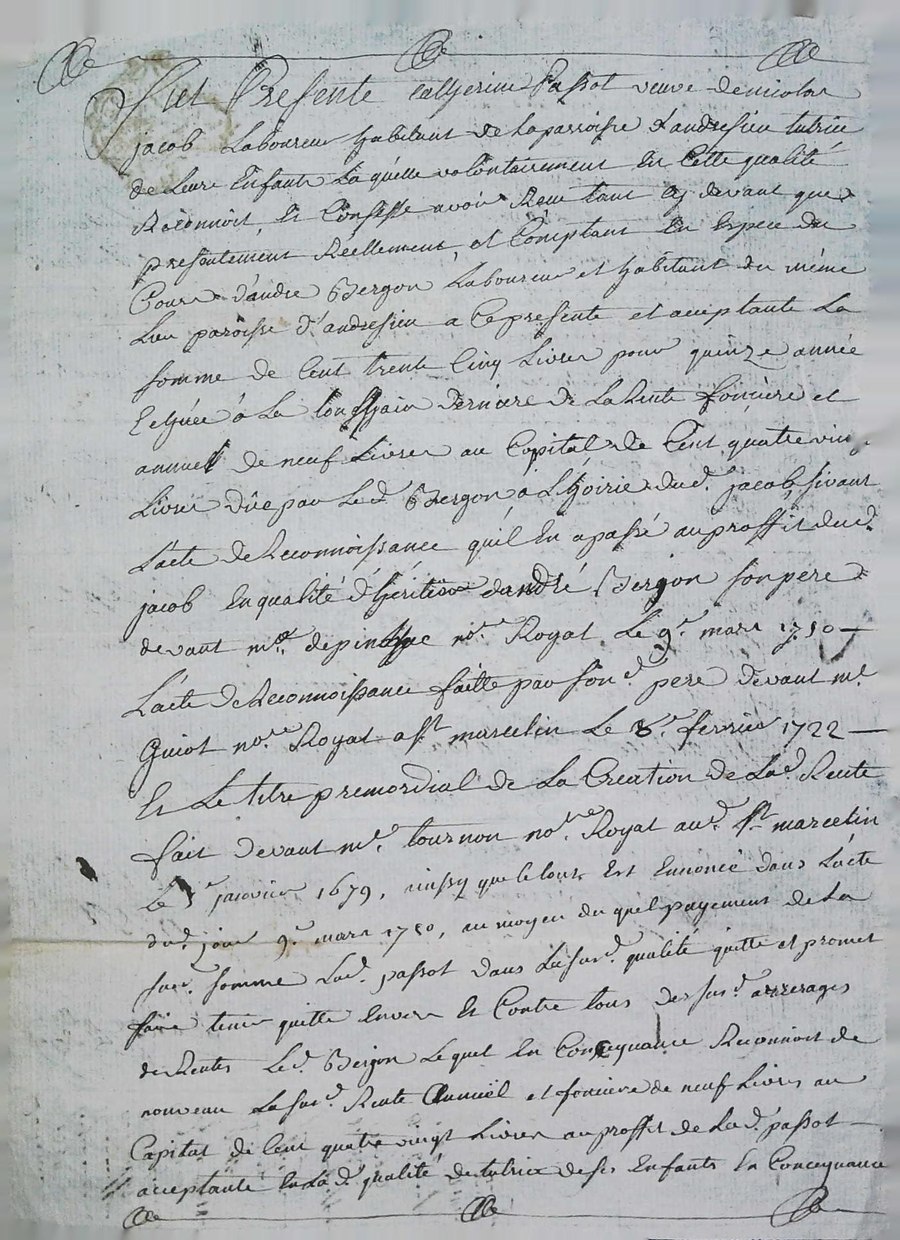 fut Presente Catherine Passot veuve de nicolas
jacob Laboureur habitant de La parroisse d'andresieu tutrice
de Leurs Enfants La quelle volontairement En Cette qualité
Reconnoit, Et Confesse avoir Receu tant Cy devant que
presentement Reellement et Comptant En Espece du
Cours d'andre Bergon Laboureur et habitant du même
Lieu paroisse d'andresieu a Ce presente et acceptante La
somme de Cent trente Cinq Livres pour quinze année
Echüée à La toussain derniere de La Rente fonciere et
annuel de neuf Livres au Capital de Cent quatre vin
Livres düe par Le d. Bergon a L'hoirie dud. jacob suivant
L'acte de Reconnoissance qu'il En a passé au proffit dud.
jacob En qualité d'héritier d'andré Bergon son pere
devant me. no.re Royal Le 9e. mars 1750
L'acte de Reconnoissance faitte par son d. pere devant me.
Guiot no.re Royal a st marcelin Le 8e. fevrier 1722
Et Le titre premordial de La Creation de La d. Rente
fait devant me. tournon no.re Royal aud. st marcelin
Le janvier 1679, ainsy que le tout Est Ennoncé dans L'acte
dud. jour 9e. mars 1750, au moyen du quel payement de La
sus. somme La d. passot dans La susd. qualité quitte et promet
faire tenir quitte Envers Et Contre tous des susd. arrerages
de Rentes Le d. Bergon Le quel En Concequance Reconnoit de
nouveau La susd. Rente Annuël et fonciere de neuf Livres au
Capital de Cent quatre vingt Livres au proffit de La d. passot
acceptante En La d. qualité de tutrice de ses Enfants En Concequance